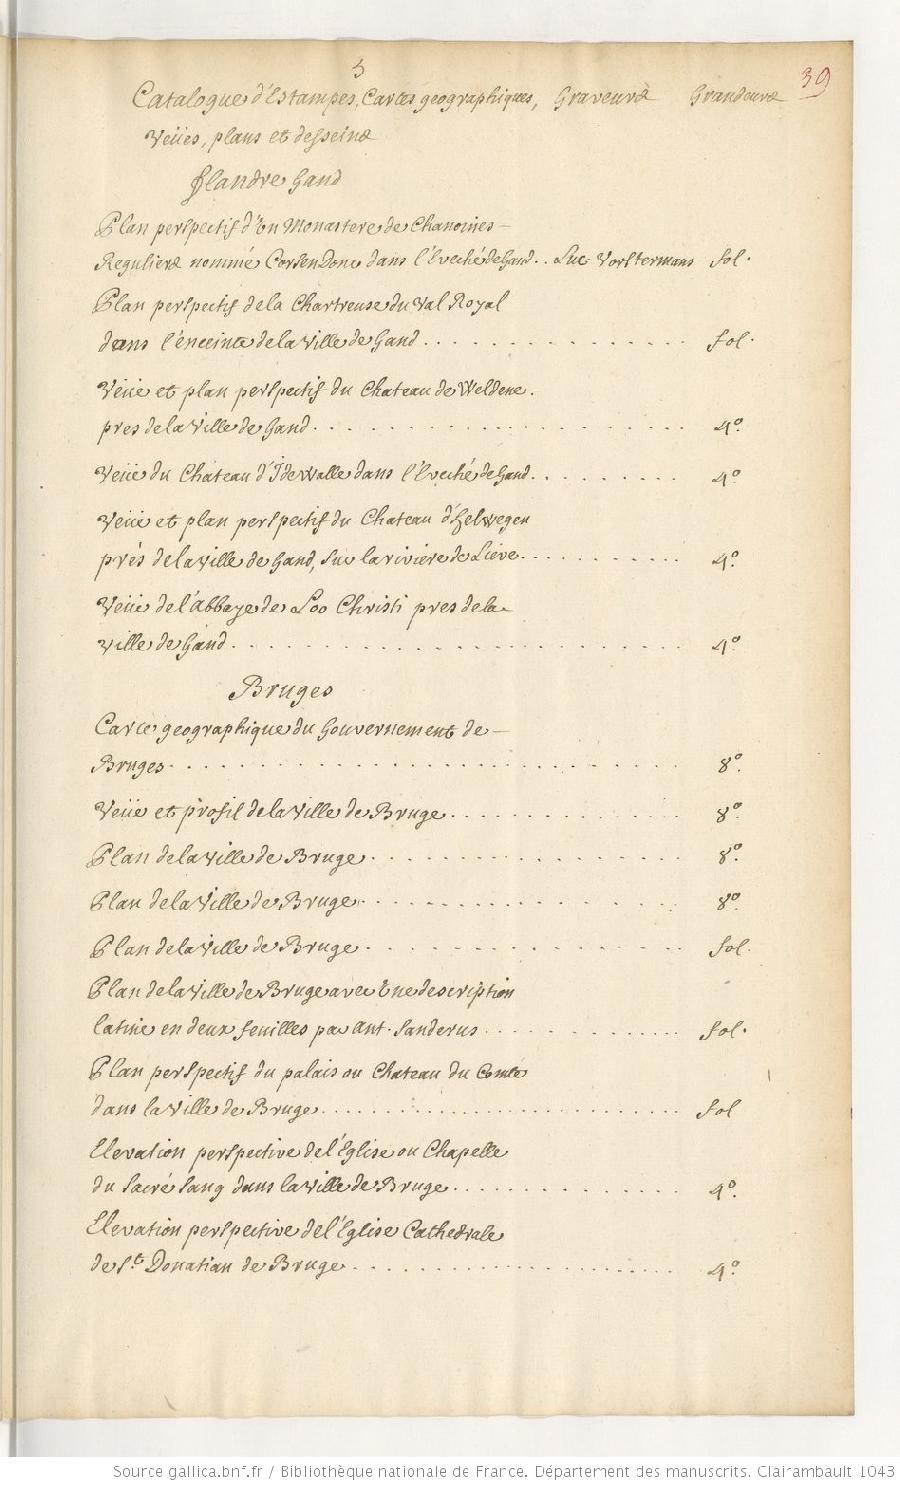 5
39
Catalogue d'Estampes, Cartes geographiques, Graveurs Grandeurs
Veües, plans et desseins
flandre Gand
Plan perspectif d'un Monastere de Chanoines
Reguliers nommé CorsenDonc dans l'Evêché de Gand.. Luc Vorstermans fol.
Plan perspectif de la Chartreuse du Val Royal
dans l'enceinte de la Ville de Gand . . . fol.
Veüe et plan perspectif du Chateau de Weldene.
pres de la Ville de Gand . . . 4º.
Veüe du Chateau d'IdeWalle dans l'Evêché de Gand . . . 4º
Veüe et plan perspectif du Chateau d'Helwegen
prés de la Ville de Gand, sur la riviere de Lieve . . . 4º.
Veüe de l'abbaye de Loo Christi pres de la
Ville de Gand . . . 4º
Bruges
Carte geographique du Gouvernement de
Bruges . . . 8º.
Veüe et profil de la Ville de Bruge . . . 8º.
Plan de la Ville de Bruge . . . 8º.
Plan de la Ville de Bruge . . . 8º.
Plan de la Ville de Bruge . . . fol.
Plan de la Ville de Bruge avec Une description
latine en deux feuilles par Ant. Sanderus . . . fol.
Plan perspectif du palais ou Chateau du Comte
dans la Ville de Bruge . . . fol
Elevation perspective de l'Eglise ou Chapelle
du Sacré Sang dans la Ville de Bruge . . . 4º.
Elevation perspective de l'Eglise Cathedrale
de St. Donatian de Bruge . . . 4º.
Source gallica.bnf.fr / Bibliothèque nationale de France. Département des manuscrits. Clairambault 1043